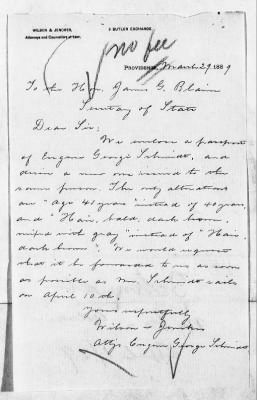 WILSON & JENCKES,
Attorneys and Counsellors at Law.
5 BUTLER EXCHANGE.
no fee
PROVIDENCE, March 29 1889
To the Hon. James G. Blain
Secretary of State
Dear Sir:
We enclose a passport
of Eugene George Schmidt, and
desire a new one issued to the
same person. The only alterations
are "age 41 years" instead of 40 years,
and "Hair, bald, dark brown,
mixed with gray" instead of "Hair
dark brown". We would request
that it be forwarded to us as soon
as possible as Mr. Schmidt sails
on April 10th.
Yours respectfully
Wilson & Jenckes
Attys Eugene George Schmidt